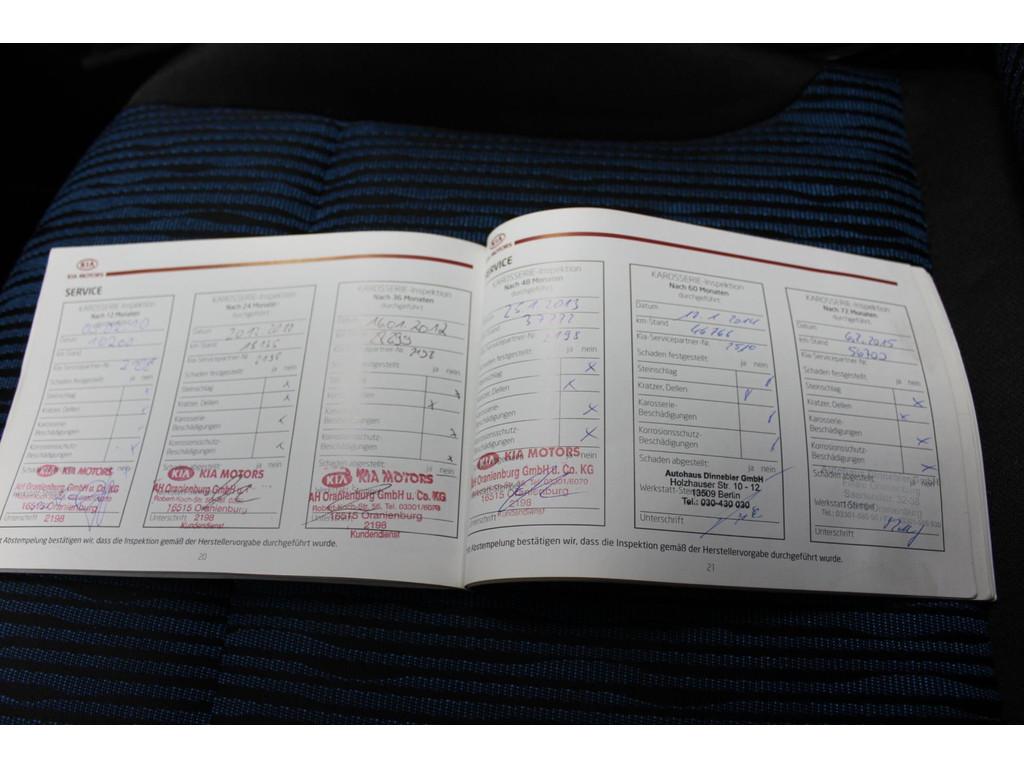 KIA
KIA MOTORS
SERVICE
KAROSSERIE-Inspektion
Nach 12 Monaten
durchgeführt
Datum
10200
km-Stand
Kia-Servicepartner-Nr. 2198
Schaden festgestellt: ja nein
Steinschlag x
Kratzer, Dellen x
Karosserie-
Beschädigungen
Korrosionsschutz-
Beschädigungen
KIA KIA MOTORS
AH Oranienburg GmbH u. Co. KG
16515 Oranienburg
2198
Unterschrift
KAROSSERIE-Inspektion
Nach 24 Monaten
durchgeführt
Datum
km-Stand
Kia-Servicepartner-Nr. 2198
Schaden festgestellt: ja nein
Steinschlag x
Kratzer, Dellen x
Karosserie-
Beschädigungen x
Korrosionsschutz-
Beschädigungen x
Schaden abgestellt: ja nein
KIA KIA MOTORS
AH Oranienburg GmbH u. Co. KG
16515 Oranienburg
2198
Unterschrift Kundendienst
KAROSSERIE-Inspektion
Nach 36 Monaten
durchgeführt
Datum 16.01.2012
km-Stand
Kia-Servicepartner-Nr. 2198
Schaden festgestellt: ja nein
Steinschlag x
Kratzer, Dellen x
Karosserie-
Beschädigungen x
Korrosionsschutz-
Beschädigungen x
Schaden abgestellt: ja nein
KIA KIA MOTORS
AH Oranienburg GmbH u. Co. KG
Robert-Koch-Str. 56, Tel. 03301/6070
16515 Oranienburg
2198
Unterschrift Kundendienst
Abstempelung bestätigen wir, dass die Inspektion gemäß der Herstellervorgabe durchgeführt wurde.
20
KIA
KIA MOTORS
SERVICE
KAROSSERIE-Inspektion
Nach 48 Monaten
durchgeführt
2198
Schaden festgestellt: ja nein
Steinschlag x
Kratzer, Dellen x
Karosserie-
Beschädigungen x
Korrosionsschutz-
Beschädigungen x
KIA KIA MOTORS
AH Oranienburg GmbH u. Co. KG
16515 Oranienburg
2198
Unterschrift Kundendienst
KAROSSERIE-Inspektion
Nach 60 Monaten
durchgeführt
Datum 17.1.2014
km-Stand 46766
Kia-Servicepartner-Nr.
Schaden festgestellt: ja nein
Steinschlag
Kratzer, Dellen
Karosserie-
Beschädigungen
Korrosionsschutz-
Beschädigungen
Schaden abgestellt: ja nein
Autohaus Dinnebier GmbH
Holzhauser Str. 10 - 12
13509 Berlin
Tel.: 030-430 030
Unterschrift
KAROSSERIE-Inspektion
Nach 72 Monaten
durchgeführt
Datum 6.2.2015
km-Stand 56700
Kia-Servicepartner-Nr.
Schaden festgestellt: ja nein
Steinschlag x
Kratzer, Dellen x
Karosserie-
Beschädigungen x
Korrosionsschutz-
Beschädigungen x
Schaden abgestellt: ja nein
Werkstatt-Stempel
Unterschrift
Abstempelung bestätigen wir, dass die Inspektion gemäß der Herstellervorgabe durchgeführt wurde.
21